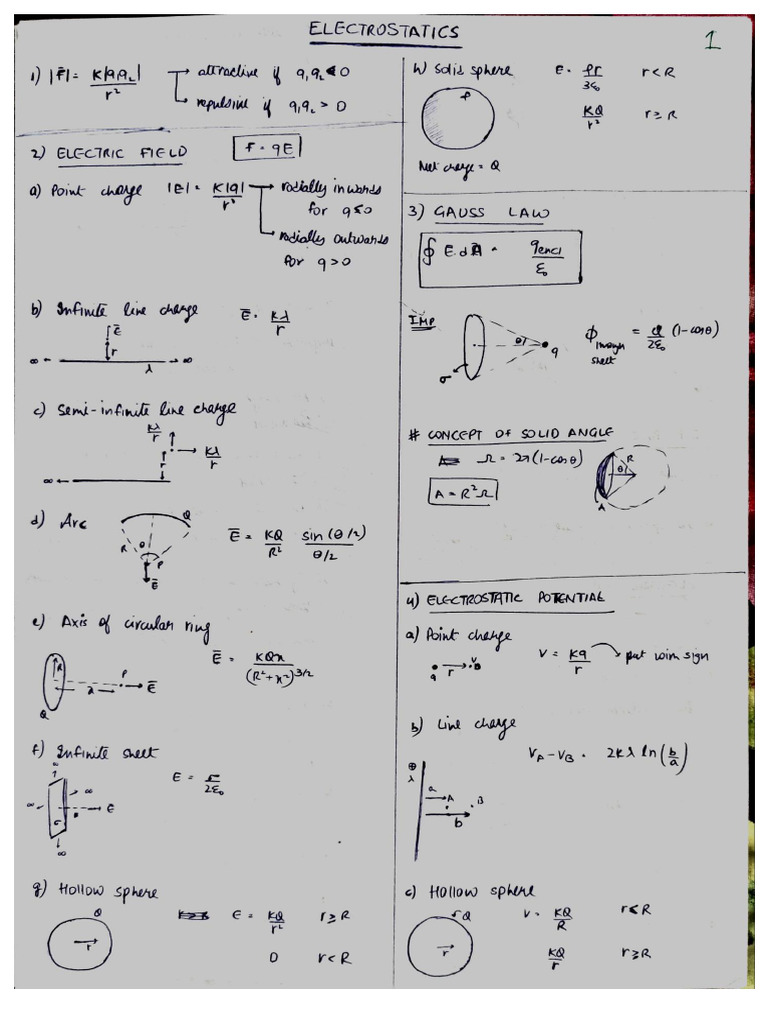 ELECTROSTATICS
1
1) |F̄| = K|q₁q₂| / r² → attractive if q₁q₂ < 0
→ repulsive if q₁q₂ > 0
2) ELECTRIC FIELD F = qE
a) Point charge |E| = K|q| / r² → radially inwards
for q ≤ 0
→ radially outwards
for q > 0
b) Infinite line charge Ē = Kλ / r
Ē
r
∞ ∞
λ
c) Semi-infinite line charge
Kλ / r
r Kλ / r
∞
d) Arc Q
R θ P
Ē
Ē = KQ / R² sin(θ/2) / θ/2
e) Axis of circular ring
R P Ē
x
Q
Ē = KQx / (R²+x²)^3/2
f) Infinite sheet
E = σ / 2ε₀
∞
∞ ∞
σ E
∞
g) Hollow sphere
Q
r
E = KQ / r² r ≥ R
0 r < R
h) Solid sphere E = ρr / 3ε₀ r < R
ρ
KQ / r² r ≥ R
Net charge = Q
3) GAUSS LAW
∮ E.dA = qencl / ε₀
IMP
θ q
σ
ϕ through sheet = q / 2ε₀ (1-cosθ)
# CONCEPT OF SOLID ANGLE
Ω = 2π(1-cosθ)
A = R²Ω
R
θ
A
4) ELECTROSTATIC POTENTIAL
a) Point charge
q r V
V = Kq / r → put with sign
b) Line charge
V_A - V_B = 2Kλ ln(b/a)
⊕
λ
a A
B
b
c) Hollow sphere
σ Q
r
V = KQ / R r < R
KQ / r r ≥ R